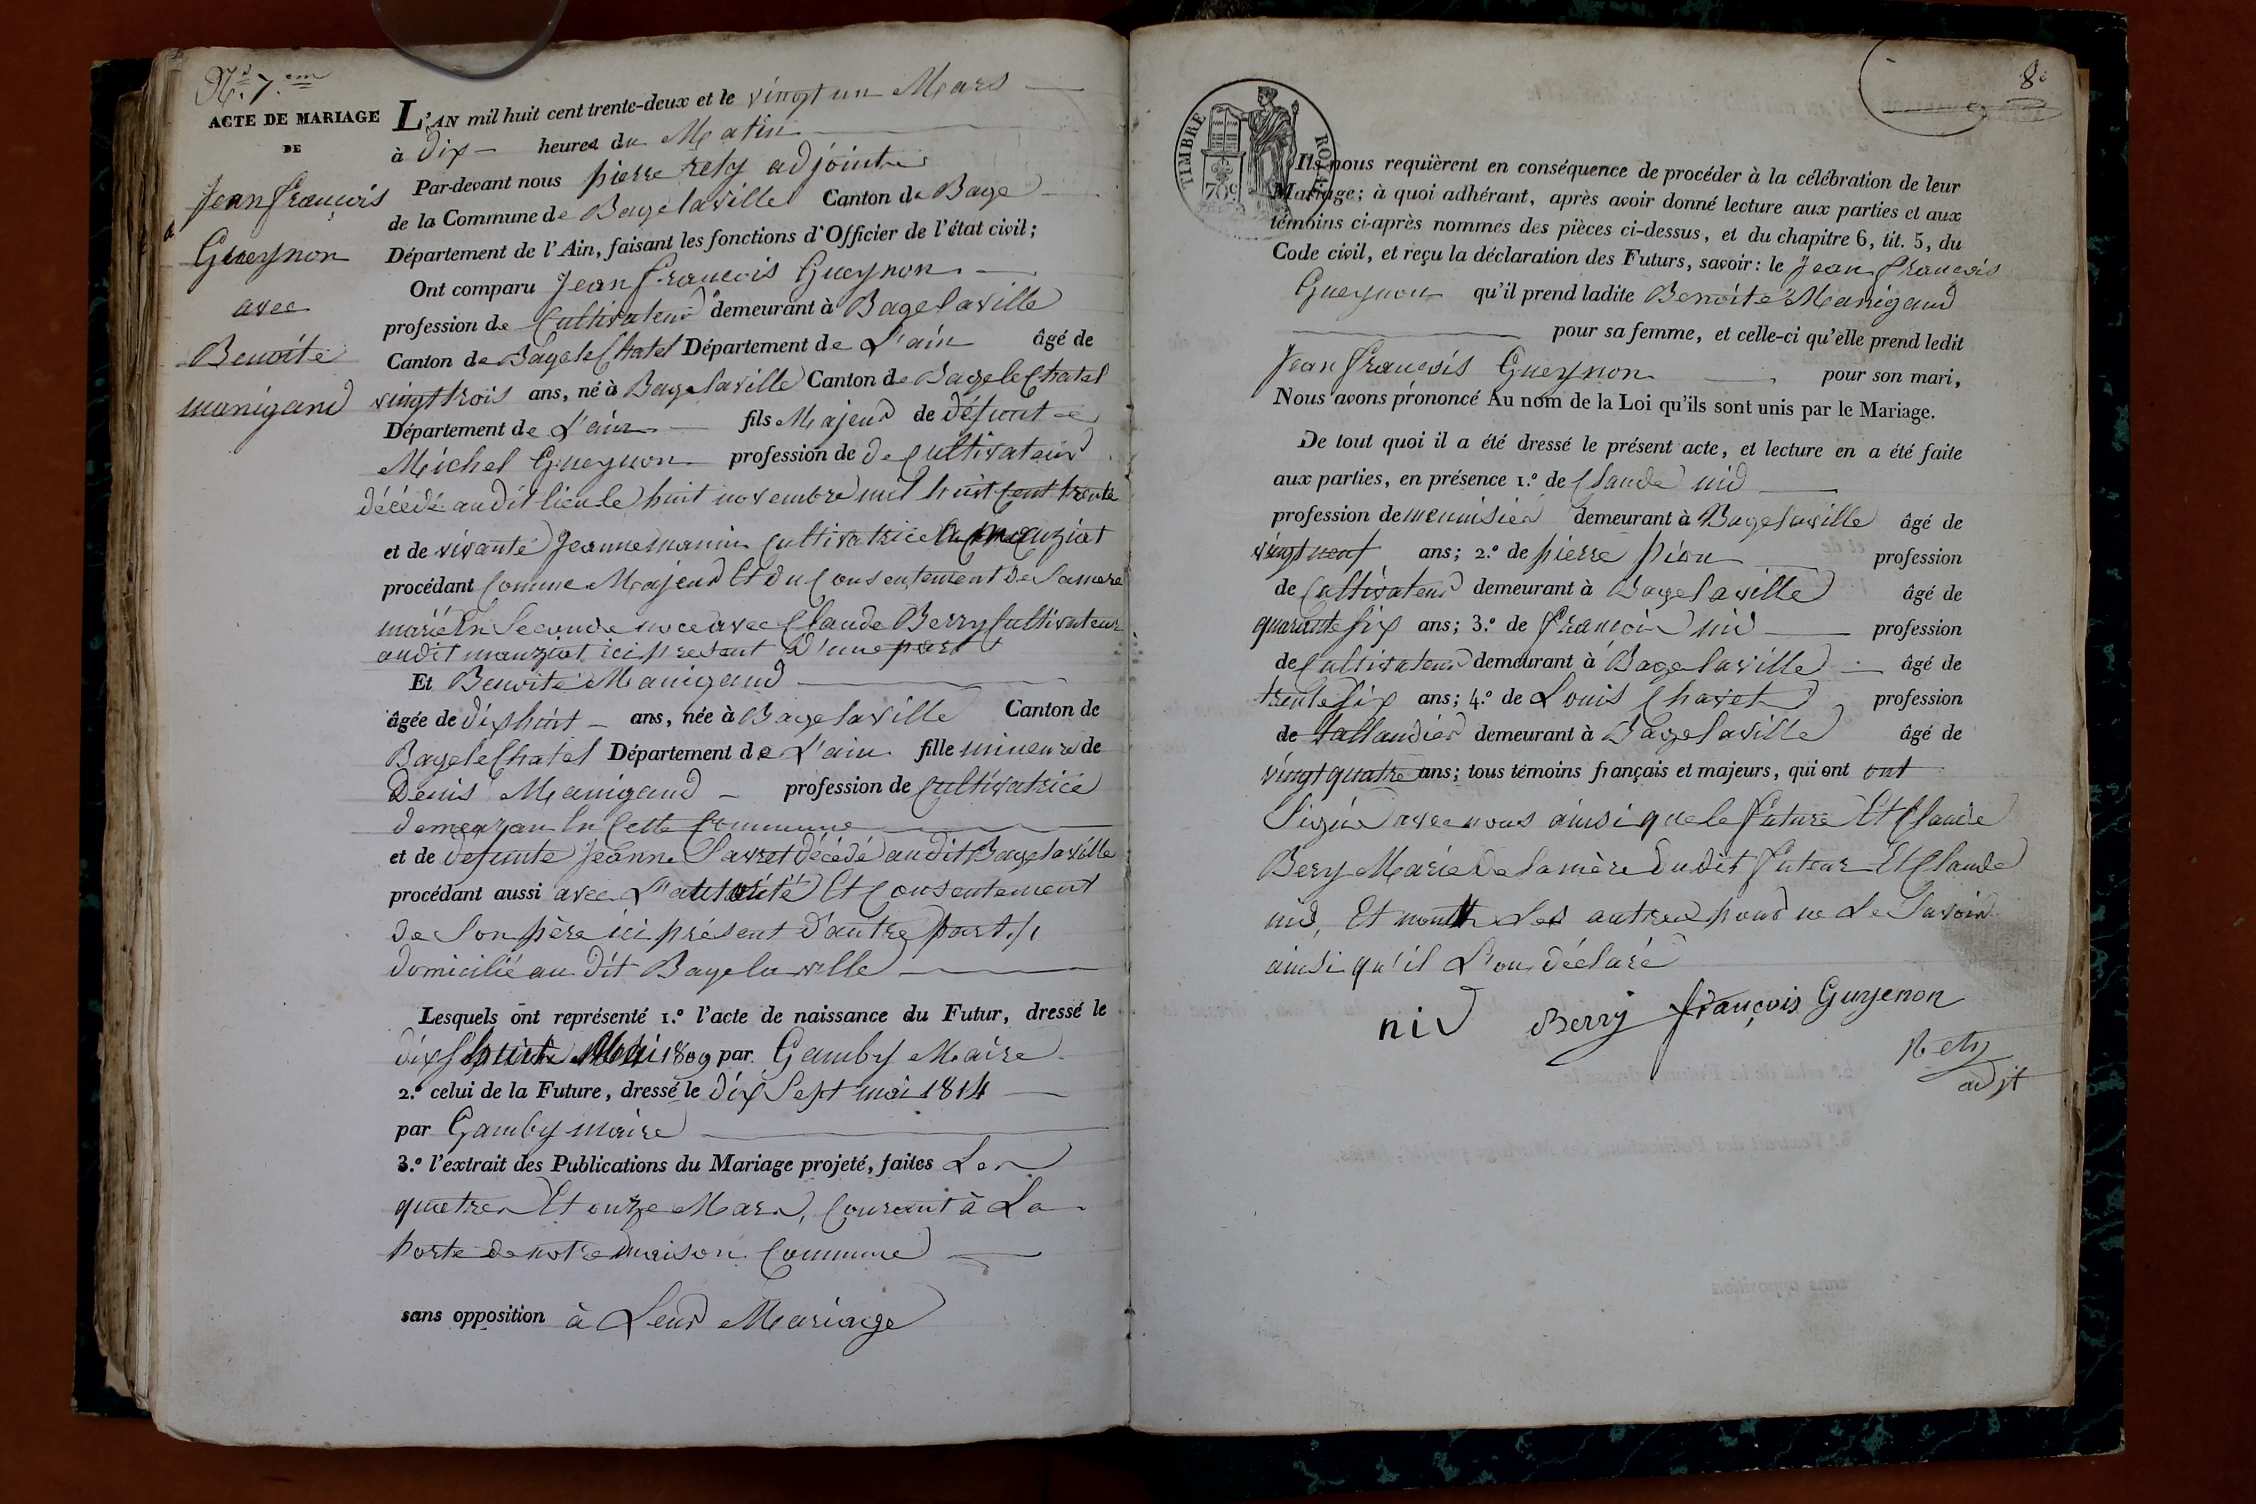 N.º 7.em
ACTE DE MARIAGE
DE
Jean françois
Gueynon
avec
Benoite
manigand
L'AN mil huit cent trente-deux et le vingt un Mars
à dix heures du Matin
Par-devant nous pierre rety adjoint
de la Commune de Bagelaville Canton de Bage
Département de l'Ain, faisant les fonctions d'Officier de l'état civil;
Ont comparu Jean françois Gueynon
profession de Cultivateur demeurant à Bagelaville
Canton de Bagele Chatel Département de L'ain âgé de
vingt trois ans, né à Bagelaville Canton de Bagele Chatel
Département de L'ain fils Majeur de défunt
Michel Gueynon profession de de Cultivateur
décédé audit lieu le huit novembre mil huit cent trente
et de vivante Jeanne manin Cultivatrice manziat
procédant Comme Majeur Et du Consentement de Samere
marié En Seconde noce avec Claude Berry Cultivateur
audit manziat ici present D'une part
Et Benoite Manigand
âgée de dixhuit ans, née à Bagelaville Canton de
Bagele Chatel Département de L'ain fille mineure de
Denis Manigand profession de Cultivatrice
demeuran En Cette Commune
et de defunte Jeanne Savret décédé audit Bagelaville
procédant aussi avec L'autorité Et Consentement
de Son père ici présent D'autre part ./.
domicilié au dit Bagelaville
Lesquels ont représenté 1.º l'acte de naissance du Futur, dressé le
Mai 1809 par Gamby Maire
2.º celui de la Future, dressé le dix Sept mai 1814
par Gamby maire
3.º l'extrait des Publications du Mariage projeté, faites Les
quatre Et onze Mars, Courant à La
porte de notre maison Commune
sans opposition à Leur Mariage
8e
TIMBRE ROYAL
70c
Ils nous requièrent en conséquence de procéder à la célébration de leur
Mariage; à quoi adhérant, après avoir donné lecture aux parties et aux
témoins ci-après nommés des pièces ci-dessus, et du chapitre 6, tit. 5, du
Code civil, et reçu la déclaration des Futurs, savoir: le Jean françois
Gueynon qu'il prend ladite Benoite Manigand
pour sa femme, et celle-ci qu'elle prend ledit
Jean françois Gueynon pour son mari,
Nous avons prononcé Au nom de la Loi qu'ils sont unis par le Mariage.
De tout quoi il a été dressé le présent acte, et lecture en a été faite
aux parties, en présence 1.º de Claude nid
profession de menuisier demeurant à Bagelaville âgé de
vingt neuf ans; 2.º de pierre pion profession
de Cultivateur demeurant à Bagelaville âgé de
quarante six ans; 3.º de françois nid profession
de Cultivateur demeurant à Bagelaville âgé de
trente six ans; 4.º de Louis Chavet profession
de tallandier demeurant à Bagelaville âgé de
vingt quatre ans; tous témoins français et majeurs, qui ont ont
Signé avec nous ainsi que le future Et Claude
Bery Marie De la mère Du dit futur Et Claude
nid, Et non Les autres pour ne Le Savoir
ainsi qu'il L'on déclaré
nid Berry françois Guyenon
Rety
adjt